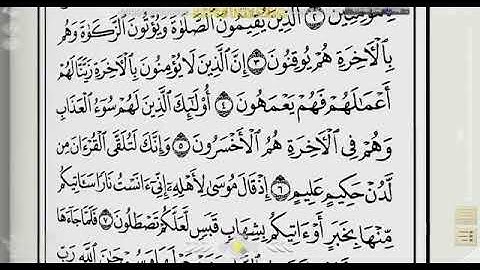 لِلْمُؤْمِنِينَ ٢ ٱلَّذِينَ يُقِيمُونَ ٱلصَّلَوٰةَ وَيُؤْتُونَ ٱلزَّكَوٰةَ وَهُم
بِٱلْأَخِرَةِ هُمْ يُوقِنُونَ ٣ إِنَّ ٱلَّذِينَ لَا يُؤْمِنُونَ بِٱلْأَخِرَةِ زَيَّنَّا لَهُمْ
أَعْمَٰلَهُمْ فَهُمْ يَعْمَهُونَ ٤ أُوْلَٰٓئِكَ ٱلَّذِينَ لَهُمْ سُوٓءُ ٱلْعَذَابِ
وَهُمْ فِى ٱلْأَخِرَةِ هُمُ ٱلْأَخْسَرُونَ ٥ وَإِنَّكَ لَتُلَقَّى ٱلْقُرْءَانَ مِن
لَّدُنْ حَكِيمٍ عَلِيمٍ ٦ إِذْ قَالَ مُوسَىٰ لِأَهْلِهِۦٓ إِنِّىٓ ءَانَسْتُ نَارًا سَـَٔاتِيكُم
مِّنْهَا بِخَبَرٍ أَوْ ءَاتِيكُم بِشِهَابٍ قَبَسٍ لَّعَلَّكُمْ تَصْطَلُونَ ٧ فَلَمَّا جَآءَهَا
ٱللَّهِ رَبِّ